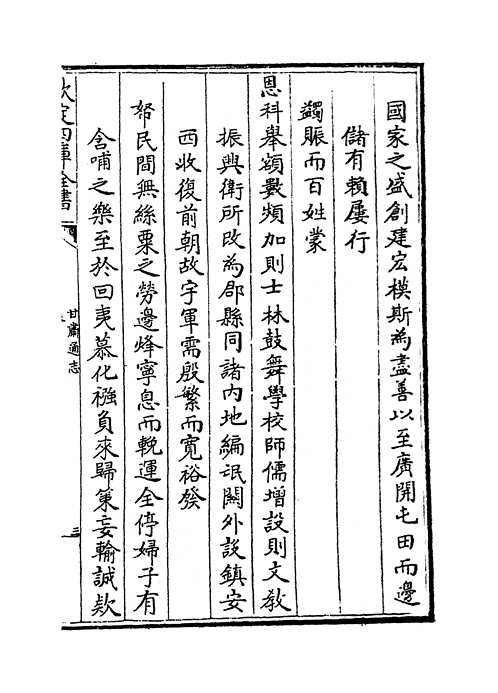 國家之盛創建宏模斯為盡善以至廣開屯田而邊
儲有賴屢行
蠲賑而百姓蒙
恩科舉額數頻加則士林鼓舞學校師儒增設則文教
振興衛所改為郡縣同諸內地編氓闗外設鎮安
西收復前朝故宇軍需殷繁而寛裕發
帑民間無絲粟之勞邊烽寧息而輓運全停婦子有
含哺之樂至於回夷慕化襁負來歸策妄輸誠欵
欽定四庫全書
甘肅通志
三